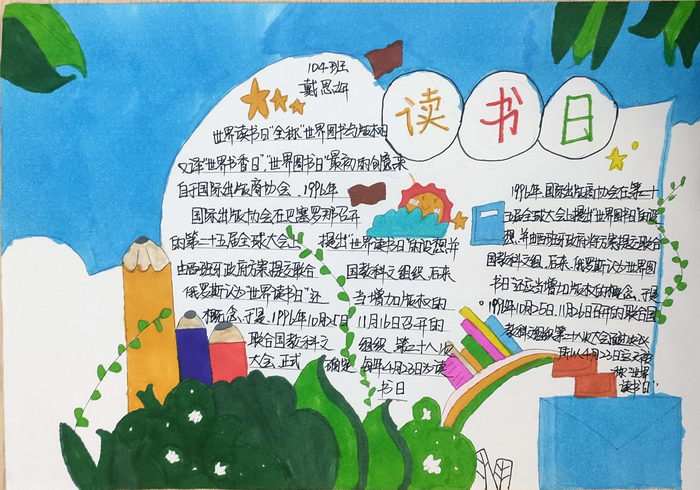 104班
戴思妍
读书日
世界读书日"全称"世界图书与版权日
又译"世界书香日","世界图书日"最初的创意来
自于国际出版商协会.1995年
国际出版协会在巴塞罗那召开
的第二十五届全球大会上 提出"世界读书日"的设想并
由西班牙政府方案提交联合 国教科文组织.后来
俄罗斯认为"世界读书日"还 当增加版权的
概念,于是.1996年10月25日 11月16日召开的
联合国教科文 组织 第二十八次
大会 正式 确定 每年4月23日为读
书日
1996年,国际出版商协会在第二十
五届全球大会上提出"世界图书日"的设
想,并由西班牙政府将方案提交联合
国教科文组织.后来,俄罗斯认为"世界图
书日"还应当增加版权的概念,于是
1996年10月25日,11月16日召开的联合国
教科文组织第二十八次大会
4月23日
称"世界
读书日"